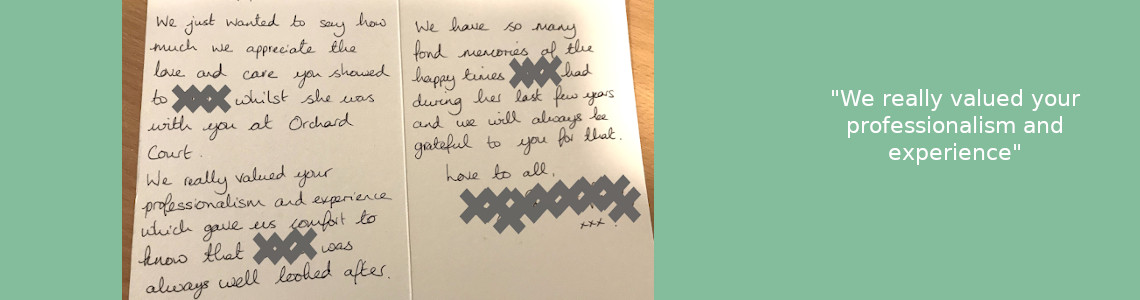 We just wanted to say how
much we appreciate the
love and care you showed
to whilst she was
with you at Orchard
Court.
We really valued your
professionalism and experience
which gave us comfort to
know that was
always well looked after.
We have so many
fond memories of the
happy times had
during her last few years
and we will always be
grateful to you for that.
Love to all,
xxx
"We really valued your
professionalism and
experience"